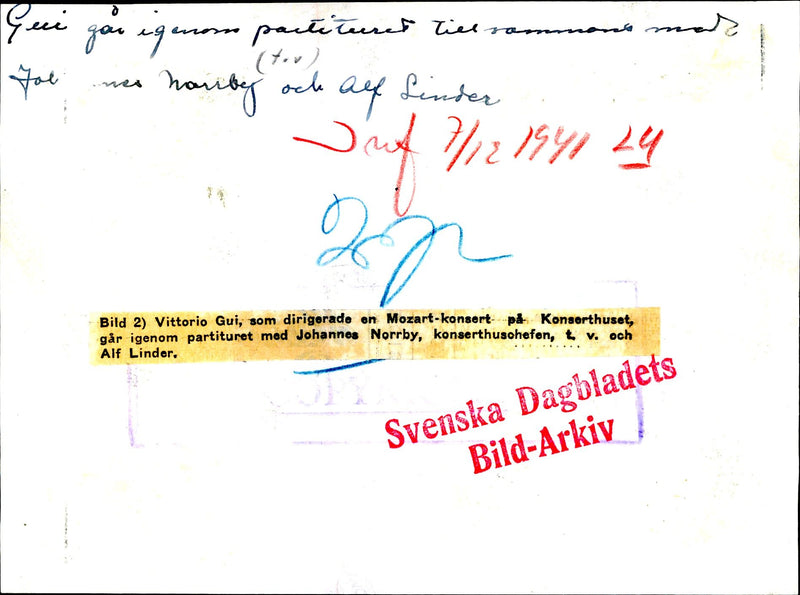 Gui går igenom partituret tillsammans med
(t.v)
Joh nes Norrby och Alf Linder
7/12 1941 24
Bild 2) Vittorio Gui, som dirigerade en Mozart-konsert på Konserthuset,
går igenom partituret med Johannes Norrby, konserthuschefen, t. v. och
Alf Linder.
Svenska Dagbladets
Bild-Arkiv